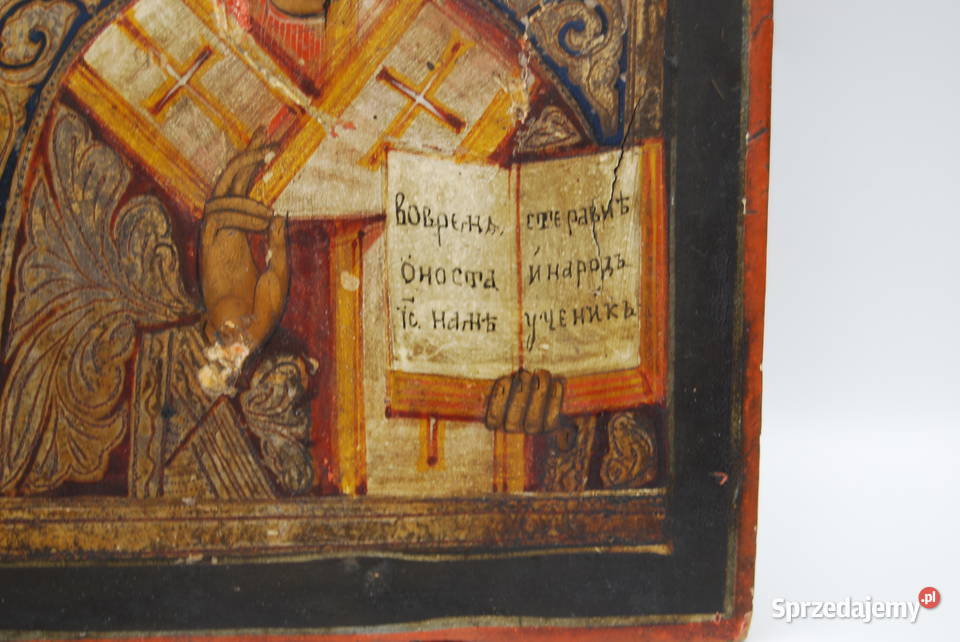 вовремѧ,
ѻноста
І҃с. намѣ
стеравнѣ
и҆народъ
ученикъ
Sprzedajemy.pl